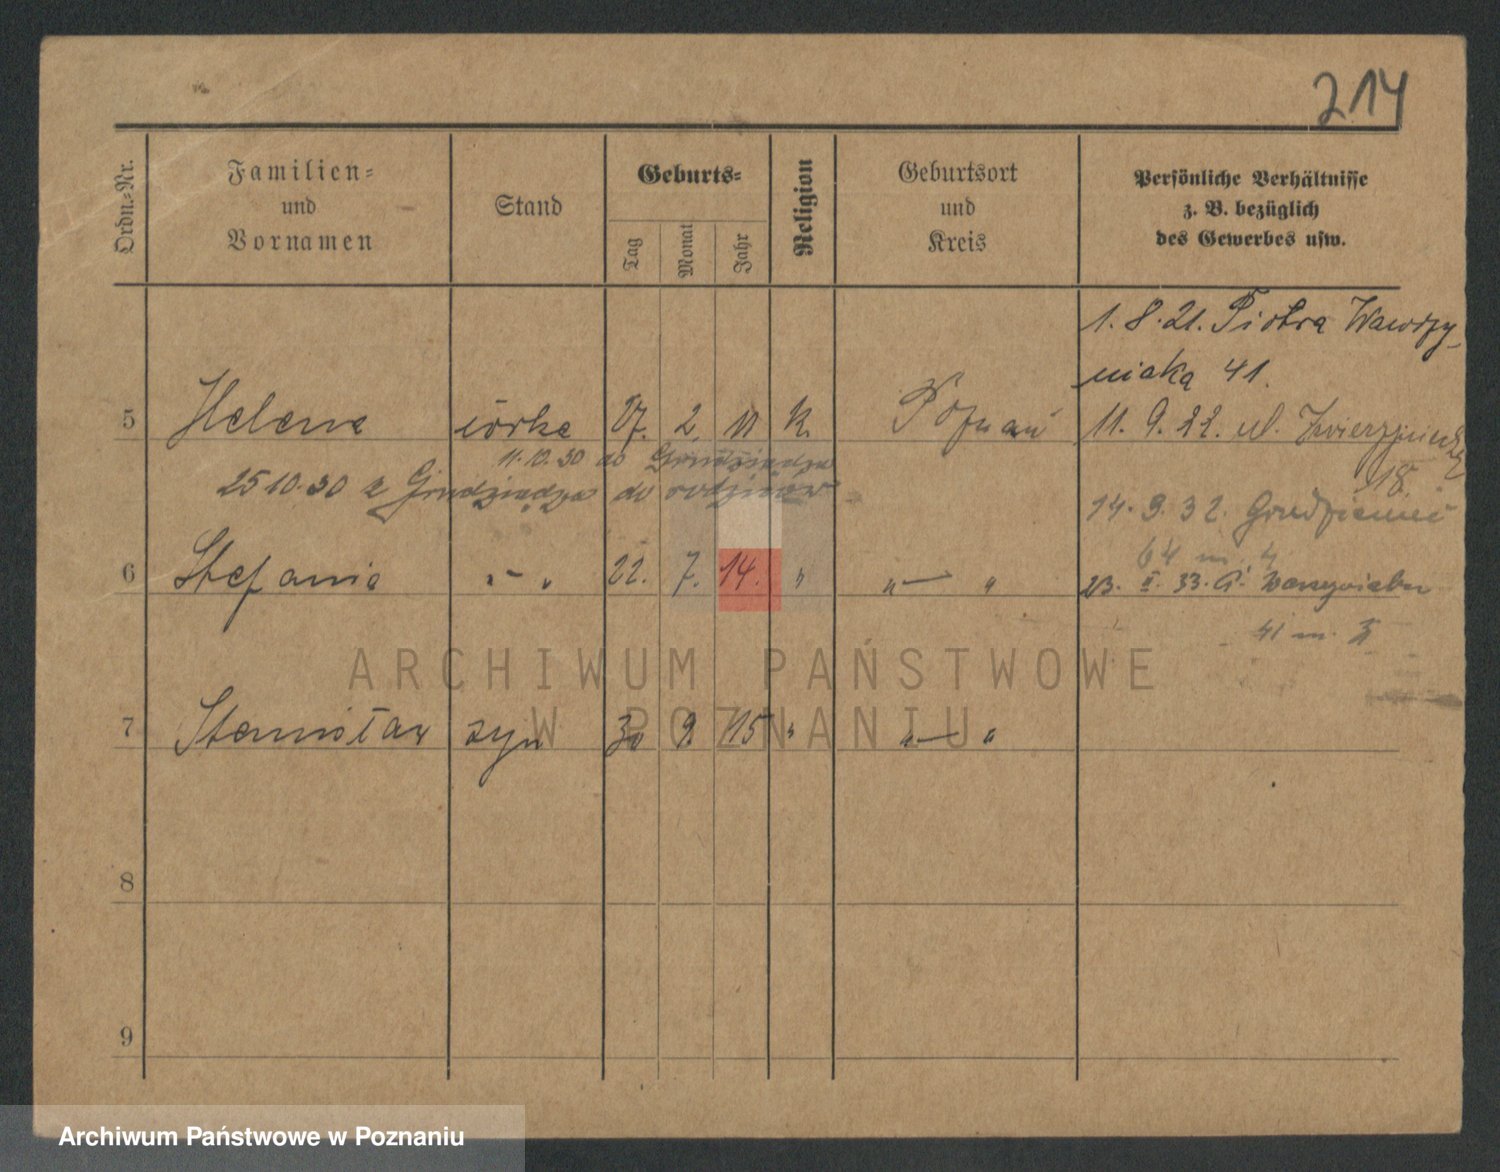 214
Ordn.=Nr.
Familien=
und
Vornamen
Stand
Geburts=
Tag
Monat
Jahr
Religion
Geburtsort
und
Kreis
Persönliche Verhältnisse
z. B. bezüglich
des Gewerbes usw.
1. 8. 21. Piotra Wawrzy-
niaka 41.
5 Helena córka 2. 11 k. Poznań 11. 9. 22. ul.
18.
11.10.30 do Grudziądza
25 10. 30 z Grudziądza do rodziców
14. 9. 32.
64 m. 4
6 Stefania " — " 22. 7. 14. " " — " 23. II. 33.
41 m.
ARCHIWUM PAŃSTWOWE
W POZNANIU
7 Stanisław syn 30 9. 15 " " — "
8
9
Archiwum Państwowe w Poznaniu